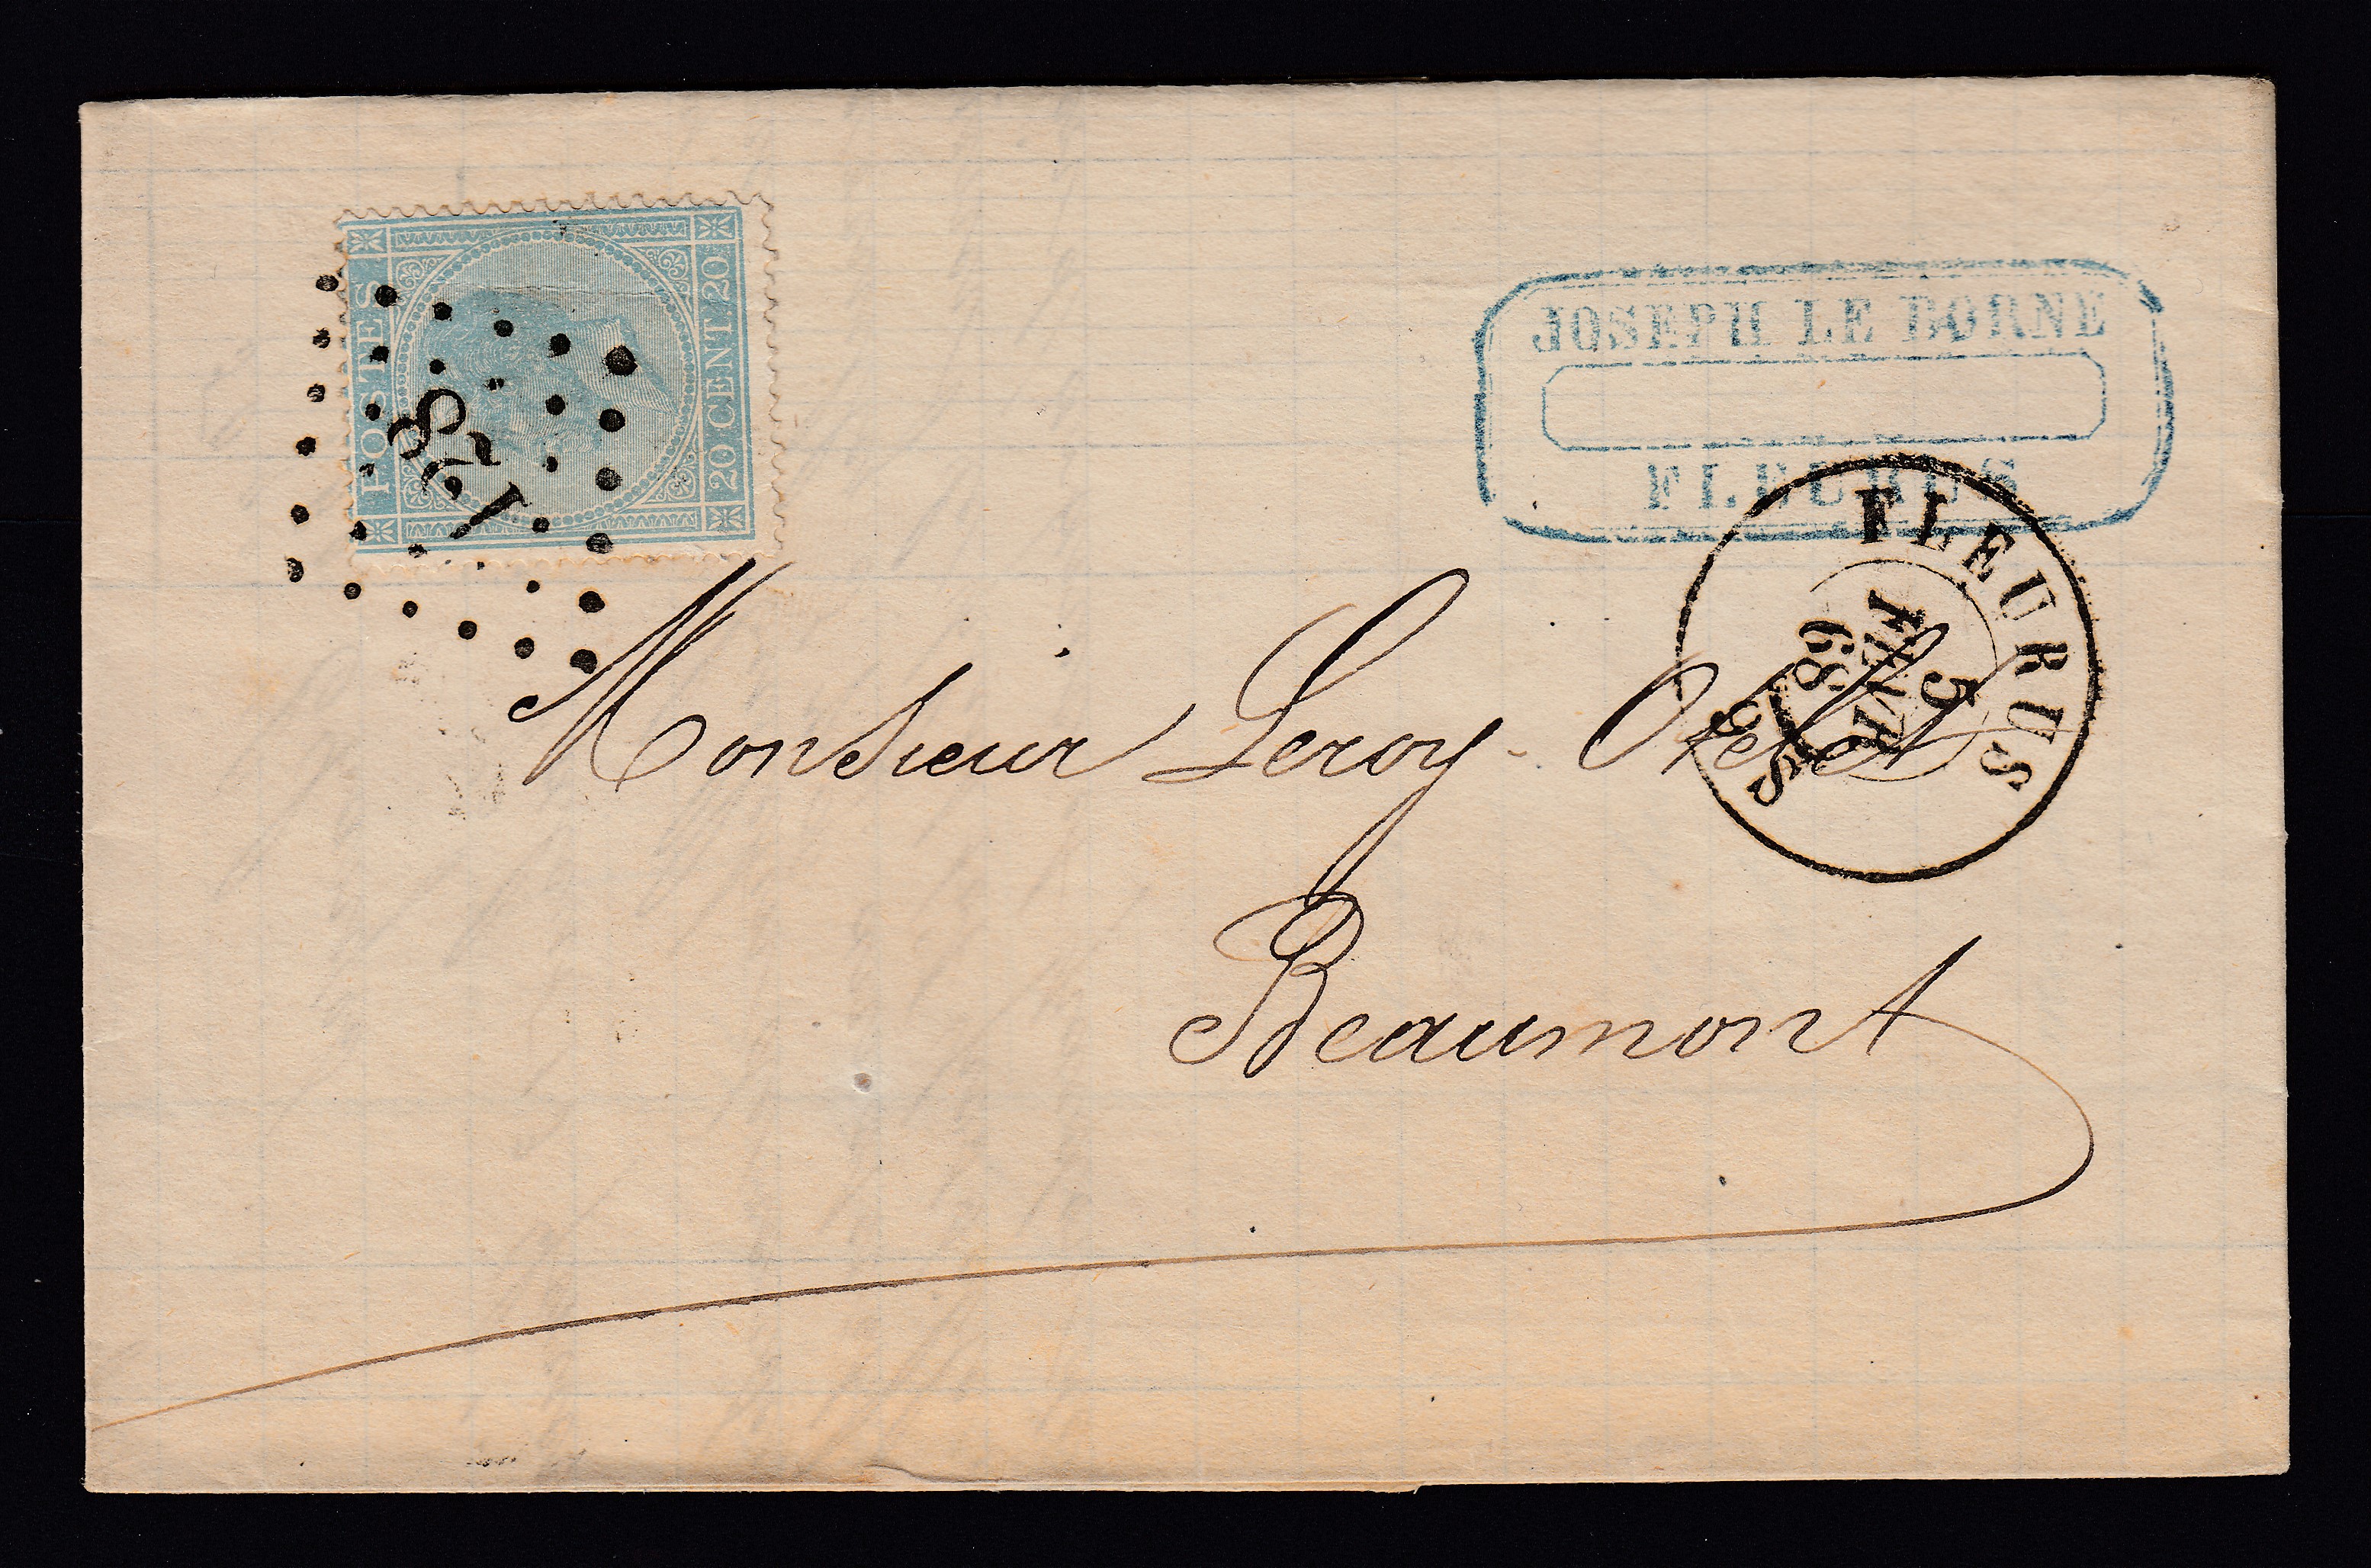 POSTES
20 CENT. 20
128
JOSEPH LE BORNE
FLEURUS
FLEURUS
5
FEVR
68
Monsieur Leroy-
Beaumont